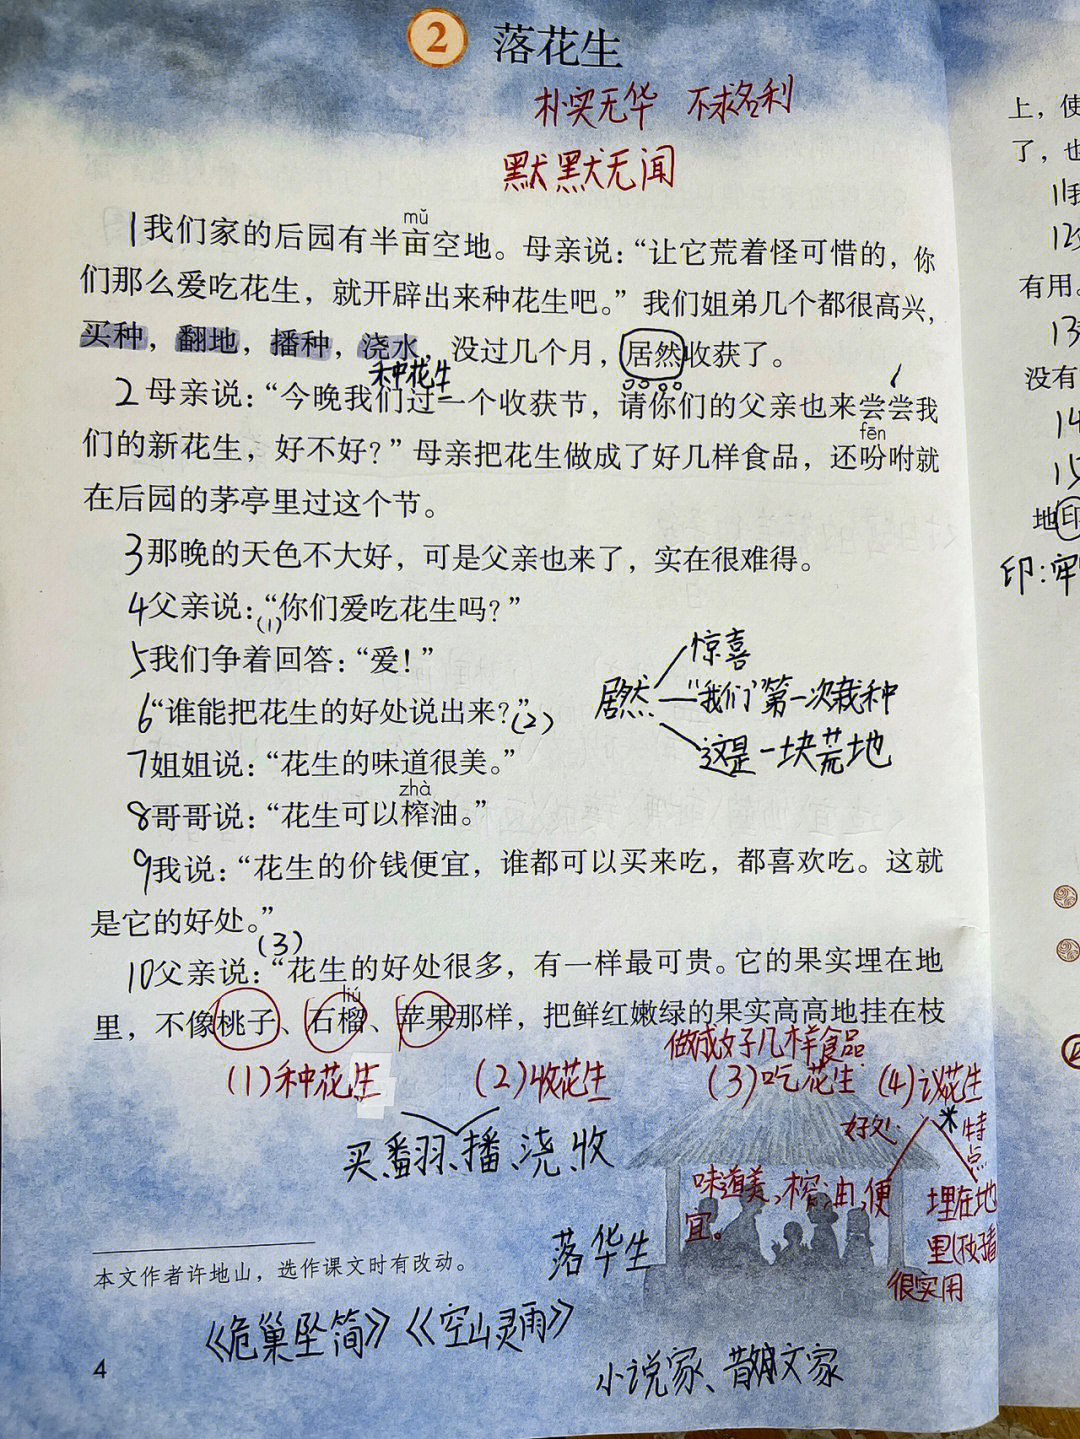 2 落花生
朴实无华 不求名利
默默无闻
mǔ
1我们家的后园有半亩空地。母亲说：“让它荒着怪可惜的，你
们那么爱吃花生，就开辟出来种花生吧。”我们姐弟几个都很高兴，
买种，翻地，播种，浇水，没过几个月，居然收获了。
种花生
2母亲说：“今晚我们过一个收获节，请你们的父亲也来尝尝我
们的新花生，好不好？”母亲把花生做成了好几样食品，还吩咐就
fēn
在后园的茅亭里过这个节。
3那晚的天色不大好，可是父亲也来了，实在很难得。
4父亲说：“你们爱吃花生吗？”
(1)
5我们争着回答：“爱！”
6“谁能把花生的好处说出来？”(2)
7姐姐说：“花生的味道很美。”
zhà
8哥哥说：“花生可以榨油。”
9我说：“花生的价钱便宜，谁都可以买来吃，都喜欢吃。这就
是它的好处。”
(3)
10父亲说：“花生的好处很多，有一样最可贵。它的果实埋在地
liú
里，不像桃子、石榴、苹果那样，把鲜红嫩绿的果实高高地挂在枝
惊喜
居然 “我们”第一次栽种
这是一块荒地
做成好几样食品
(1)种花生 (2)收花生 (3)吃花生 (4)议花生
买、翻、播、浇、收
好处 特点
味道美、榨油、便宜。
埋在地里
很实用
落华生
本文作者许地山，选作课文时有改动。
《危巢坠简》《空山灵雨》
小说家、散文家
4
上，使
了，也
11我
12
有用。
13
没有
14
15
地印
印：牢